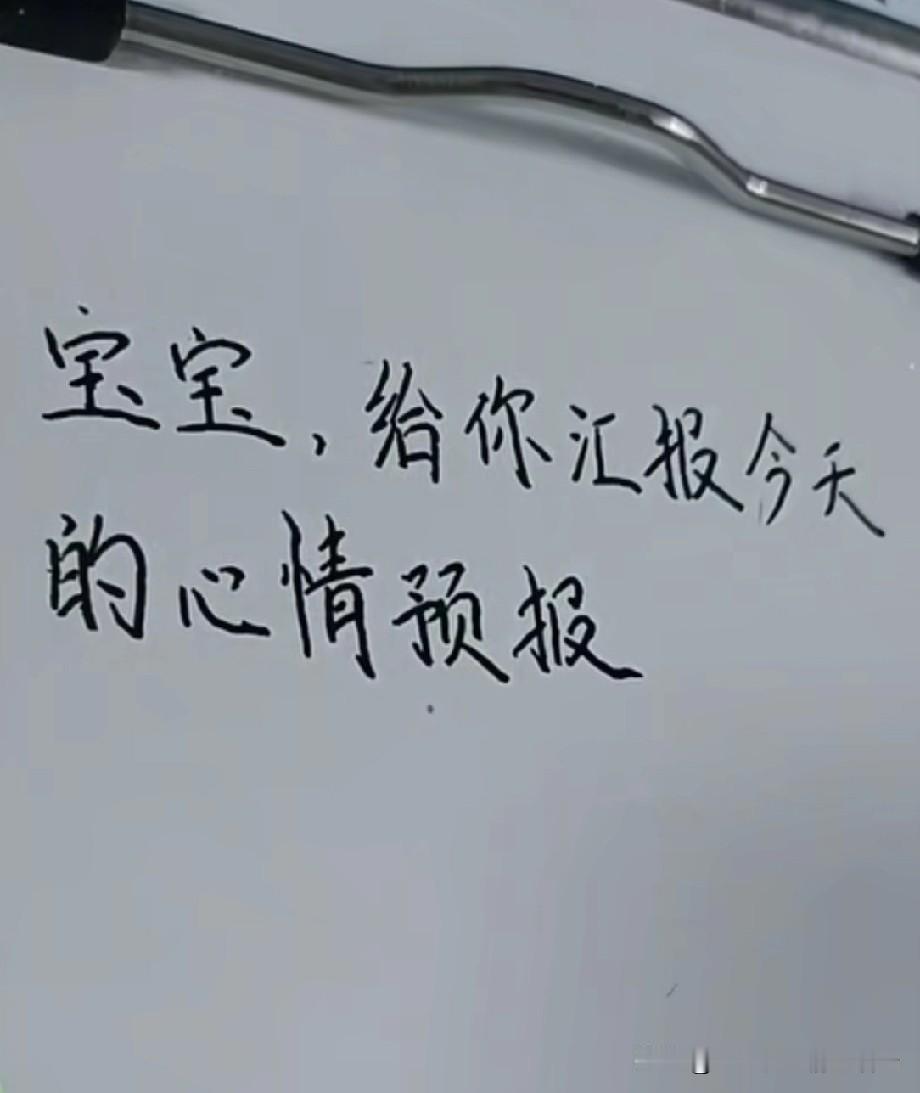 宝宝,给你汇报今天
的心情预报